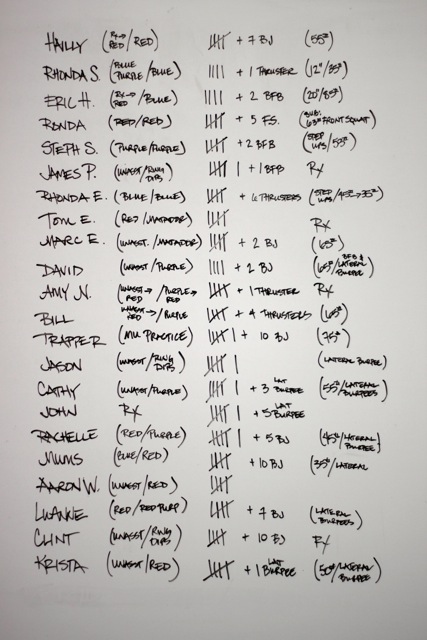 HAILLY (RX→RED/RED) 𝍸 + 7 BJ (55#)
RHONDA S. (BLUE PURPLE/BLUE) |||| + 1 THRUSTER (12"/35#)
ERIC H. (RX→RED/BLUE) |||| + 2 BFB (20"/85#)
RONDA (RED/RED) 𝍸 + 5 F.S. (SUB: 63# FRONT SQUAT)
STEPH S. (PURPLE/PURPLE) 𝍸 + 2 BFB (STEP UPS/55#)
JAMES P. (UNASST/RING DIPS) 𝍸 | + 1 BFB RX
RHONDA E. (BLUE/BLUE) 𝍸 + 6 THRUSTERS (STEP UPS/45#→35#)
TOM E. (RED/MATADOR) 𝍸 RX
MARC E. (UNASST./MATADOR) 𝍸 + 2 BJ (65#)
DAVID (UNASST/PURPLE) |||| + 2 BJ (65#/BFB & LATERAL BURPEE)
AMY N. (UNASST→RED/PURPLE→RED) 𝍸 + 1 THRUSTER RX
BILL UNASST→RED/PURPLE 𝍸 + 4 THRUSTERS (65#)
TRAPPER (MU PRACTICE) 𝍸 | + 10 BJ (75#)
JASON (UNASST/RING DIPS) 𝍸 | (LATERAL BURPEE)
CATHY (UNASST/PURPLE) 𝍸 | + 3 LAT BURPEE (55#/LATERAL BURPEES)
JOHN RX 𝍸 | + 5 LAT BURPEE
RACHELLE (RED/PURPLE) 𝍸 | + 5 BJ (45#/LATERAL BURPEE)
MUMS (BLUE/RED) + 10 BJ (35#/LATERAL
AARON W. (UNASST/RED) 𝍸
LUANNE (RED/RED PURP) 𝍸 + 7 BJ (LATERAL BURPEES)
CLINT (UNASST/RING DIPS) 𝍸 + 10 BJ RX
KRISTA (UNASST/RED) 𝍸 + 1 LAT BURPEE (50#/LATERAL BURPEE)